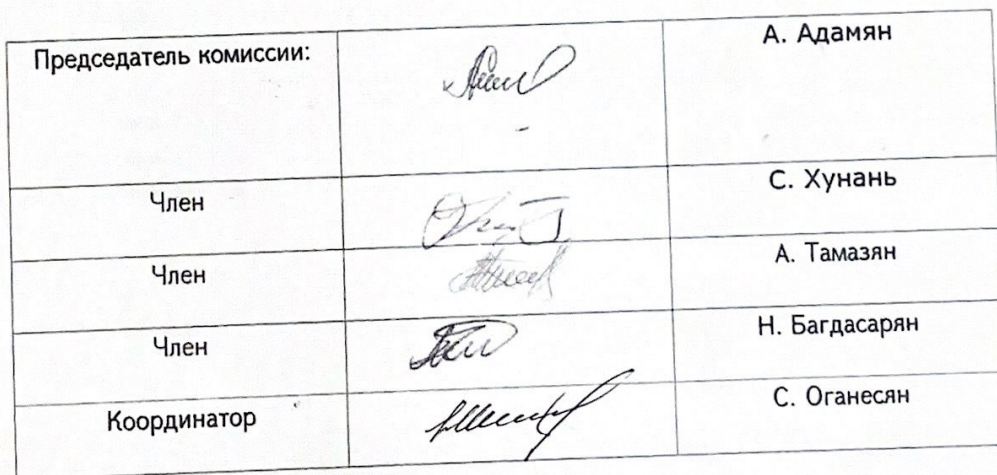 Председатель комиссии: А. Адамян
Член С. Хунань
Член А. Тамазян
Член Н. Багдасарян
Координатор С. Оганесян